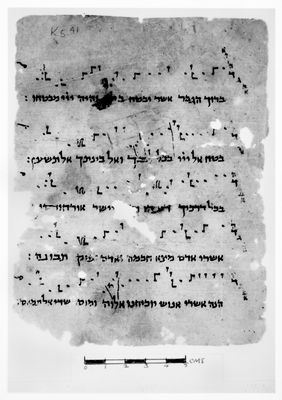 K5.41
ברוך הגבר אשר יבטח והיה יוי מבטחו :
בטח אל יוי בכל לבך ואל בינתך אל תשען :
בכל דרכיך יישר אורחותיך
אשרי אדם מצא חכמה ואדם יפיק תבונה :
הנה אשרי אנוש יוכיחנו אלוה ומוסר שדי אל תמאס
0 1 2 3 4 5 CMS